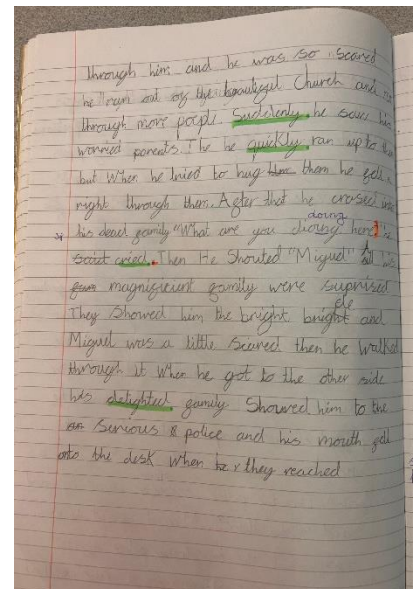 through him and he was so scared
he ran out of the beautiful Church and
through more people. Suddenly, he saw his
worried parents! he he quickly, ran up to
but when he tried to hug them he fell
right through them. After that he crosed
his dead family "What are you doing here"
said cried. Then He Shouted "Miguel" his
magnificent family were suprised
They showed him the bright bright and
Miguel was a little scared then he walked
through it When he got to the other side
his delighted family Showed him to the
Serious police and his mouth fell
onto the desk when they reached